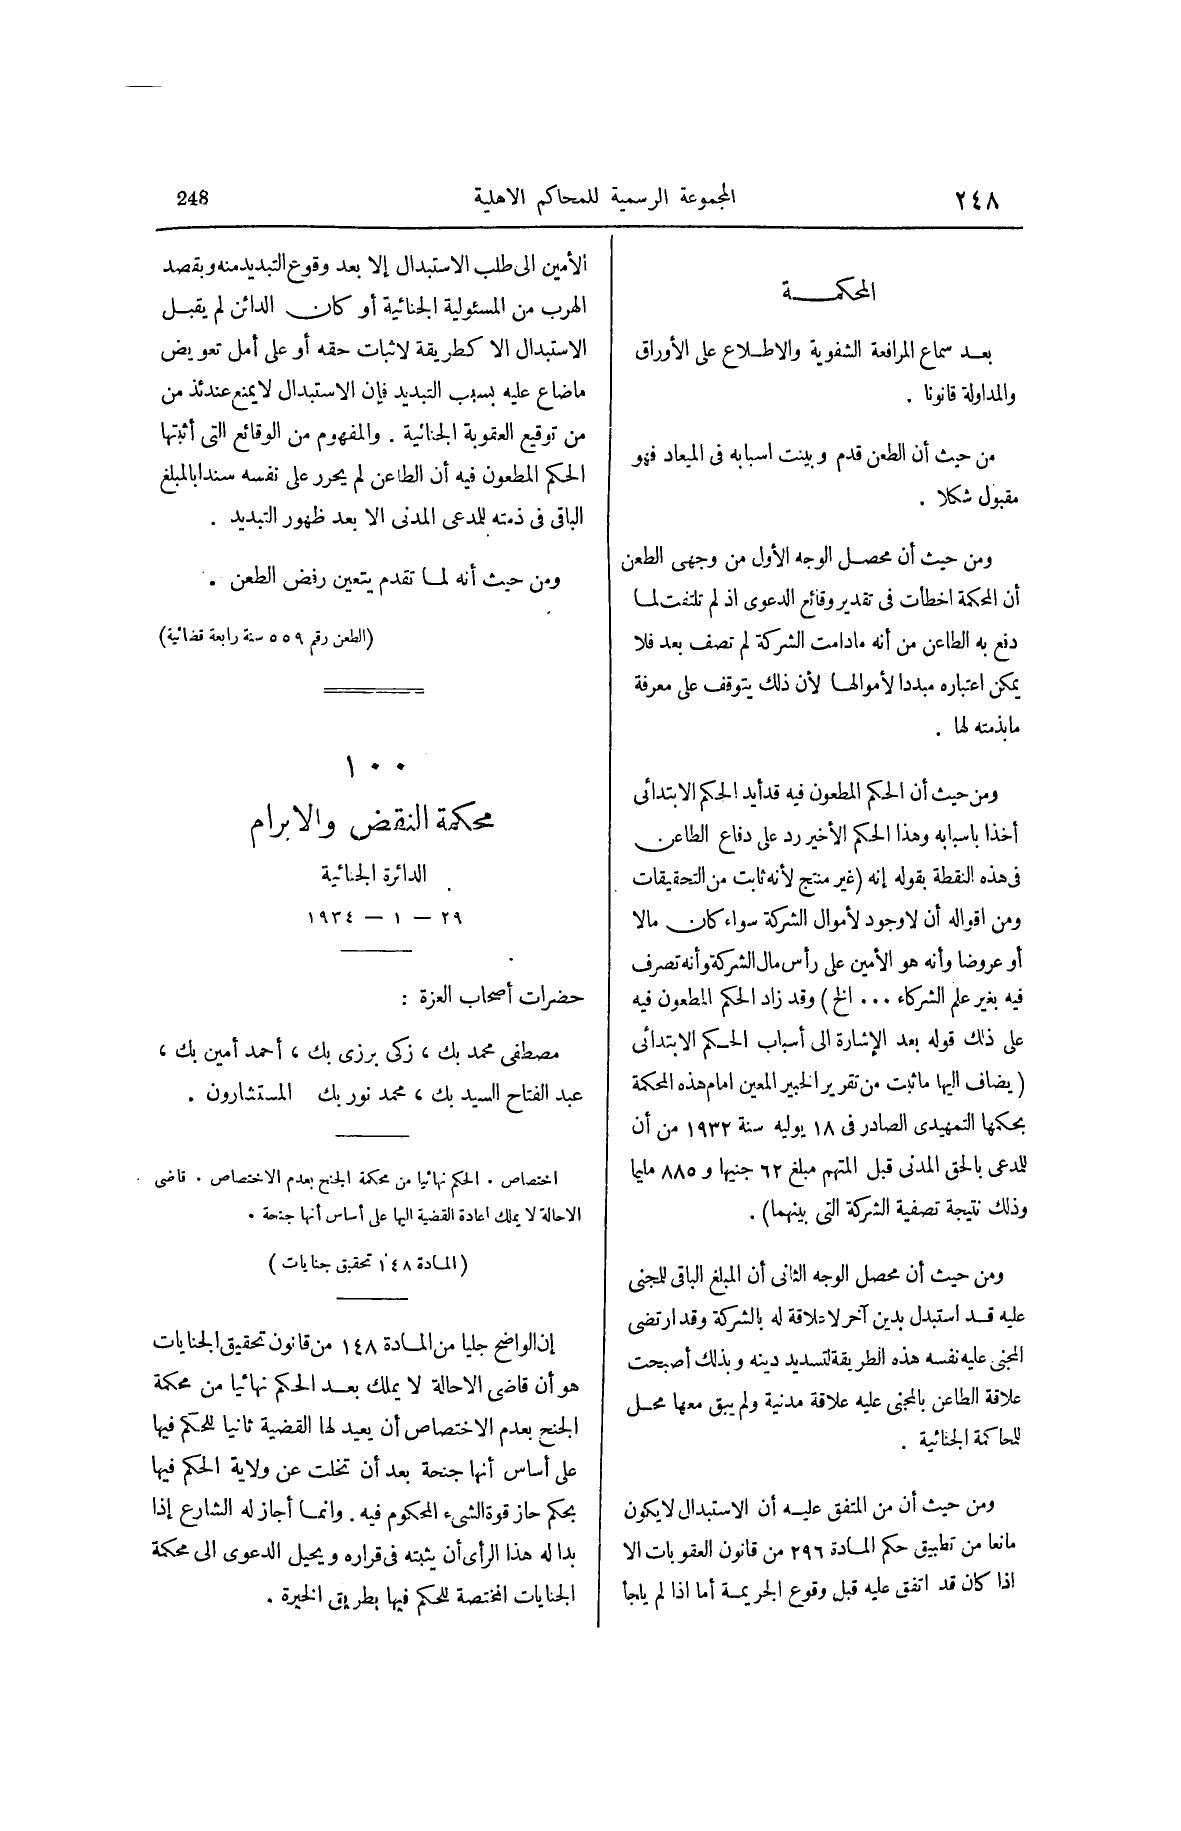 ٢٤٨
المجموعة الرسمية للمحاكم الاهلية
248
المحكمــــة
بعـد سماع المرافعة الشفوية والاطـلاع على الأوراق
والمداولة قانونا .
من حيث أن الطعن قدم وبينت اسبابه فى الميعاد فهو
مقبول شكلا .
ومن حيث أن محصـل الوجه الأول من وجهى الطعن
أن المحكمة اخطأت فى تقدير وقائع الدعوى اذ لم تلتفت لمـا
دفع به الطاعن من أنه مادامت الشركة لم تصف بعد فلا
يمكن اعتباره مبددا لأموالهـا لأن ذلك يتوقف على معرفة
مابذمته لها .
ومن حيث أن الحكم المطعون فيه قد أيد الحكم الابتدائى
أخذا باسبابه وهذا الحكم الأخير رد على دفاع الطاعن
فى هذه النقطة بقوله إنه (غير منتج لأنه ثابت من التحقيقات
ومن اقواله أن لاوجود لأموال الشركة سواء كان مالا
أو عروضا وأنه هو الأمين على رأس مال الشركة وأنه تصرف
فيه بغير علم الشركاء ... الخ) وقد زاد الحكم المطعون فيه
على ذلك قوله بعد الإشارة الى أسباب الحـكم الابتدائى
( يضاف اليها ماثبت من تقرير الخبير المعين امام هذه المحكمة
بحكمها التمهيدى الصادر فى ١٨ يوليه سنة ١٩٣٢ من أن
للمدعى بالحق المدنى قبل المتهم مبلغ ٦٢ جنيها و ٨٨٥ مليما
وذلك نتيجة تصفية الشركة التى بينهما) .
ومن حيث أن محصل الوجه الثانى أن المبلغ الباقى للمجنى
عليه قـد استبدل بدين آخر لاعلاقة له بالشركة وقد ارتضى
المجنى عليه نفسه هذه الطريقة لتسديد دينه وبذلك أصبحت
علاقة الطاعن بالمجنى عليه علاقة مدنية ولم يبق معها محـل
للمحاكمة الجنائية .
ومن حيث أن من المتفق عليـه أن الاستبدال لايكون
مانعا من تطبيق حكم المـادة ٢٩٦ من قانون العقوبات الا
اذا كان قد اتفق عليه قبل وقوع الجريمـة أما اذا لم يلجأ
الأمين الى طلب الاستبدال إلا بعد وقوع التبديد منه وبقصد
الهرب من المسئولية الجنائية أو كان الدائن لم يقبـل
الاستبدال الا كطريقة لاثبات حقه أو على أمل تعويض
ماضاع عليه بسبب التبديد فإن الاستبدال لا يمنع عندئذ من
من توقيع العقوبة الجنائية . والمفهوم من الوقائع التى أثبتها
الحكم المطعون فيه أن الطاعن لم يحرر على نفسه سندا بالمبلغ
الباقى فى ذمته للمدعى المدنى الا بعد ظهور التبديد .
ومن حيث أنه لمـا تقدم يتعين رفض الطعن .
(الطعن رقم ٥٥٩ سنة رابعة قضائية)
١٠٠
محكمة النقض والابرام
الدائرة الجنائية
٢٩ – ١ – ١٩٣٤
حضرات أصحاب العزة :
مصطفى محمد بك ، زكى برزى بك ، أحمد أمين بك ،
عبد الفتاح السيد بك ، محمد نور بك المستشارون .
اختصاص . الحكم نهائيا من محكمة الجنح بعدم الاختصاص . قاضى
الاحالة لا يملك اعادة القضية اليها على أساس أنها جنحة .
(المـادة ١٤٨ تحقيق جنايات )
إن الواضح جليا من المـادة ١٤٨ من قانون تحقيق الجنايات
هو أن قاضى الاحالة لا يملك بعـد الحكم نهائيا من محكمة
الجنح بعدم الاختصاص أن يعيد لها القضية ثانيا للحكم فيها
على أساس أنها جنحة بعد أن تخلت عن ولاية الحكم فيها
بحكم حاز قوة الشىء المحكوم فيه . وانمـا أجاز له الشارع إذا
بدا له هذا الرأى أن يثبته فى قراره ويحيل الدعوى الى محكمة
الجنايات المختصة للحكم فيها بطريق الخيرة .